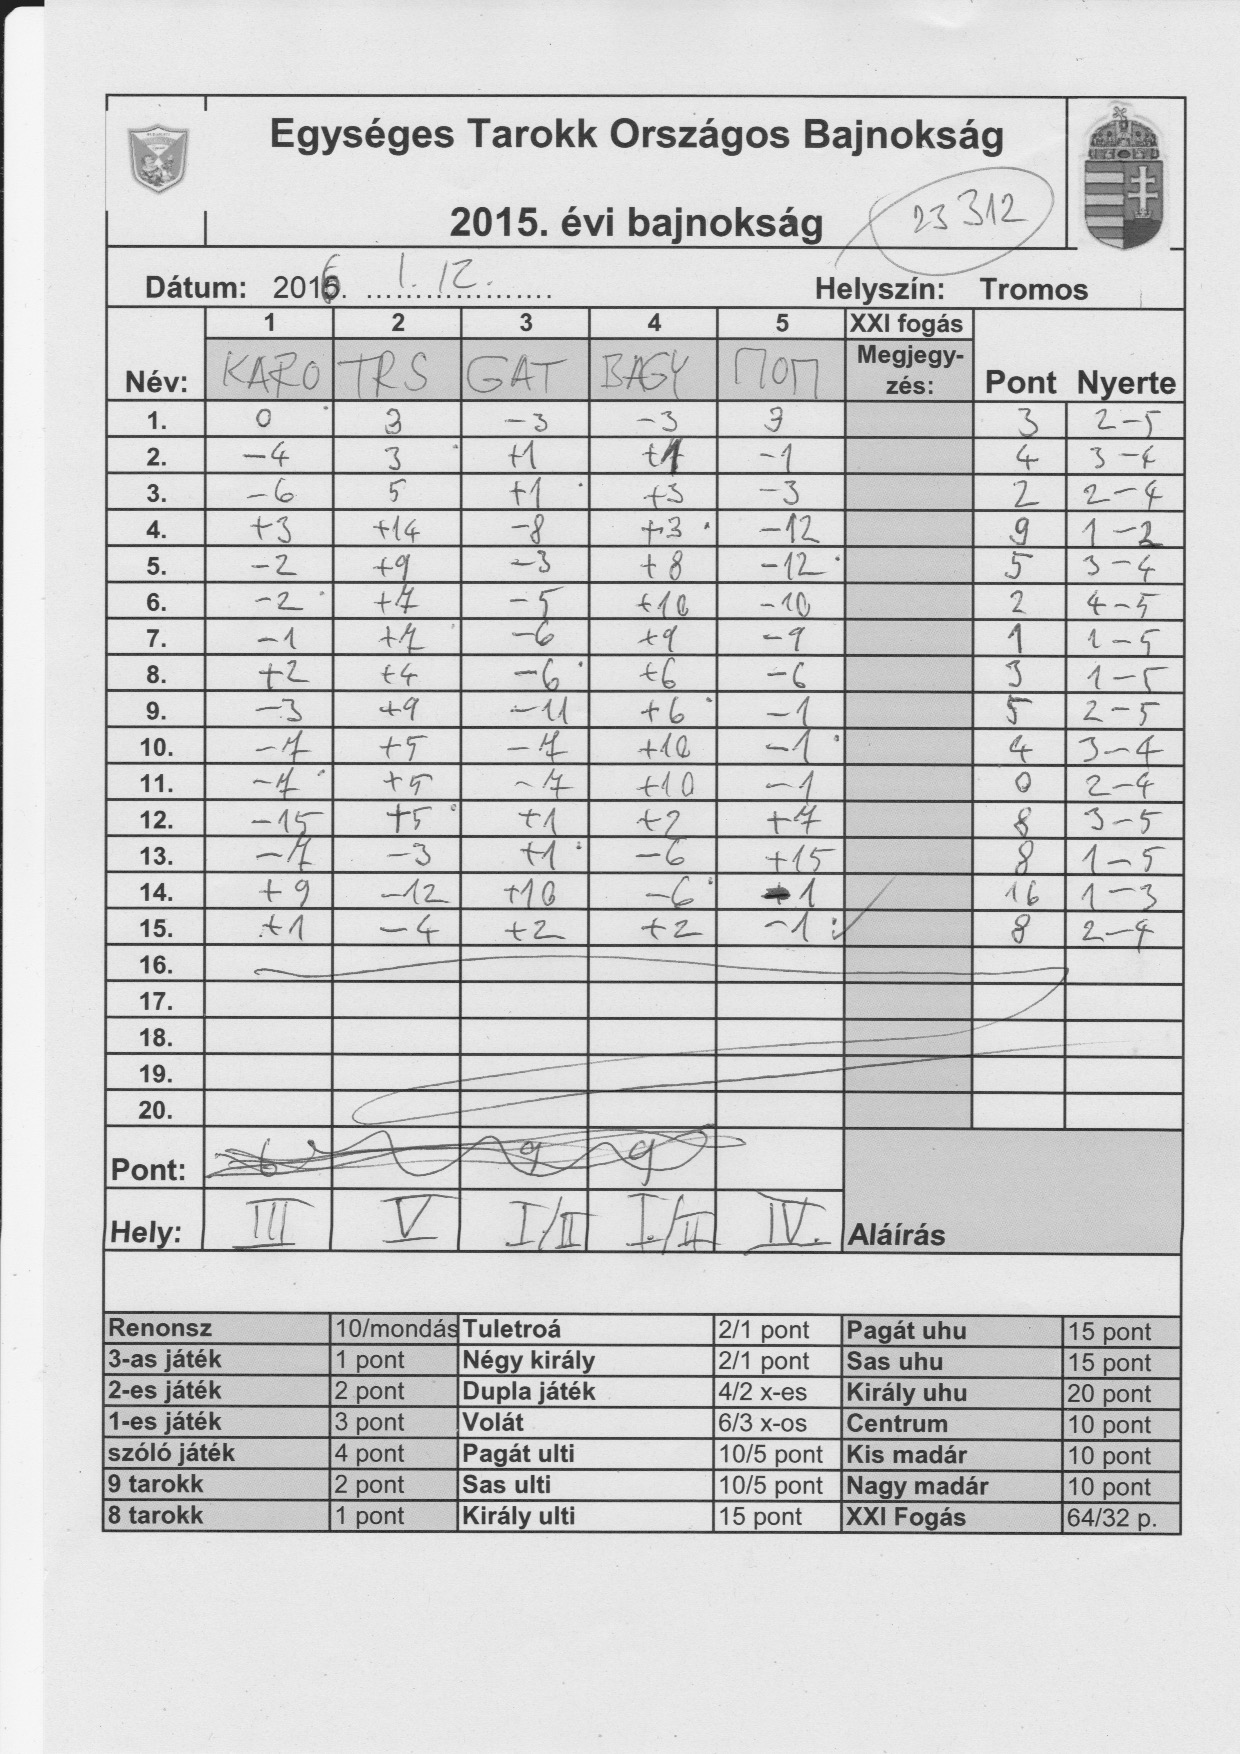 Egységes Tarokk Országos Bajnokság
2015. évi bajnokság
23 312
Dátum: 2016. 1. 12. Helyszín: Tromos
1 2 3 4 5 XXI fogás
Név: KARO TRS GAT BAGY ПОП Megjegy-zés: Pont Nyerte
1. 0 3 -3 -3 3 3 2-5
2. -4 3 +1 +1 -1 4 3-4
3. -6 5 +1 +3 -3 2 2-4
4. +3 +14 -8 +3 -12 9 1-2
5. -2 +9 -3 +8 -12 5 3-4
6. -2 +7 -5 +10 -10 2 4-5
7. -1 +7 -6 +9 -9 1 1-5
8. +2 +4 -6 +6 -6 3 1-5
9. -3 +9 -11 +6 -1 5 2-5
10. -7 +5 -7 +10 -1 4 3-4
11. -7 +5 -7 +10 -1 0 2-4
12. -15 +5 +1 +2 +7 8 3-5
13. -7 -3 +1 -6 +15 8 1-5
14. +9 -12 +10 -6 1 16 1-3
15. +1 -4 +2 +2 -1 8 2-4
16.
17.
18.
19.
20.
Pont: 6 9 9
Hely: III V I/II I./II IV. Aláírás
Renonsz 10/mondás Tuletroá 2/1 pont Pagát uhu 15 pont
3-as játék 1 pont Négy király 2/1 pont Sas uhu 15 pont
2-es játék 2 pont Dupla játék 4/2 x-es Király uhu 20 pont
1-es játék 3 pont Volát 6/3 x-os Centrum 10 pont
szóló játék 4 pont Pagát ulti 10/5 pont Kis madár 10 pont
9 tarokk 2 pont Sas ulti 10/5 pont Nagy madár 10 pont
8 tarokk 1 pont Király ulti 15 pont XXI Fogás 64/32 p.